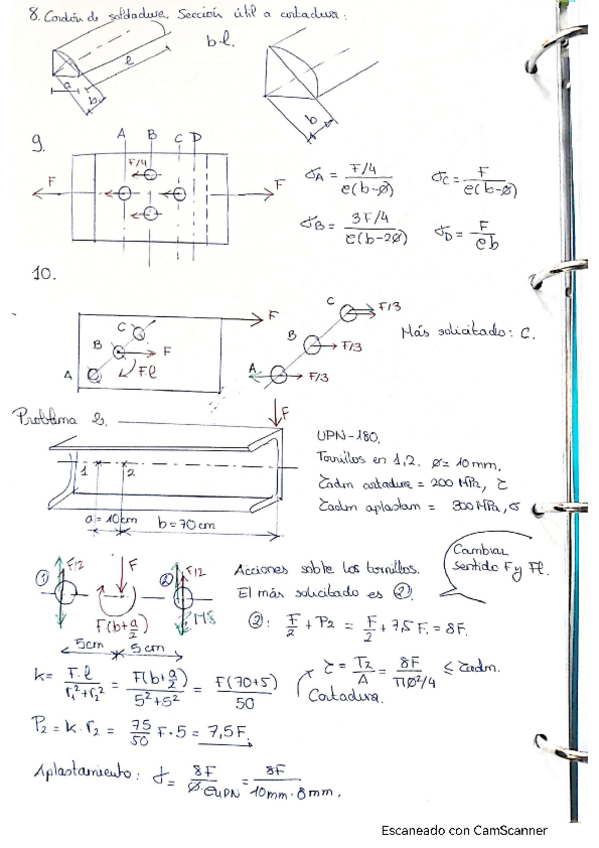 8. Cordón de soldadura. Sección útil a cortadura:
b·l.
l
a
b
b
9.
A B C D
F/4
F
F
σA = F/4 / e(b-ø)
σC = F / e(b-ø)
σB = 3F/4 / e(b-2ø)
σD = F / eb
10.
F
C
B
A
F
Fl
C F/3
B F/3
A F/3
Más solicitado: C.
Problema 2.
F
1 2
a = 10cm
b = 70cm
UPN-180.
Tornillos en 1,2. ø = 10mm.
τadm cortadura = 200 MPa, τ
τadm aplastam = 300 MPa, σ
① F/2
F
② F/2
F(b+a/2)
M8
5cm 5cm
Acciones sobre los tornillos.
El más solicitado es ②.
Cambiar
sentido F y Fl.
②: F/2 + P2 = F/2 + 7,5F. = 8F.
k = F·l / r1²+r2² = F(b+a/2) / 5²+5² = F(70+5) / 50
τ = T2/A = 8F / πø²/4 ≤ τadm.
Cortadura.
P2 = k·r2 = 75/50 F·5 = 7,5F.
Aplastamiento: σ = 8F / ø·eUPN = 8F / 10mm·8mm.
Escaneado con CamScanner